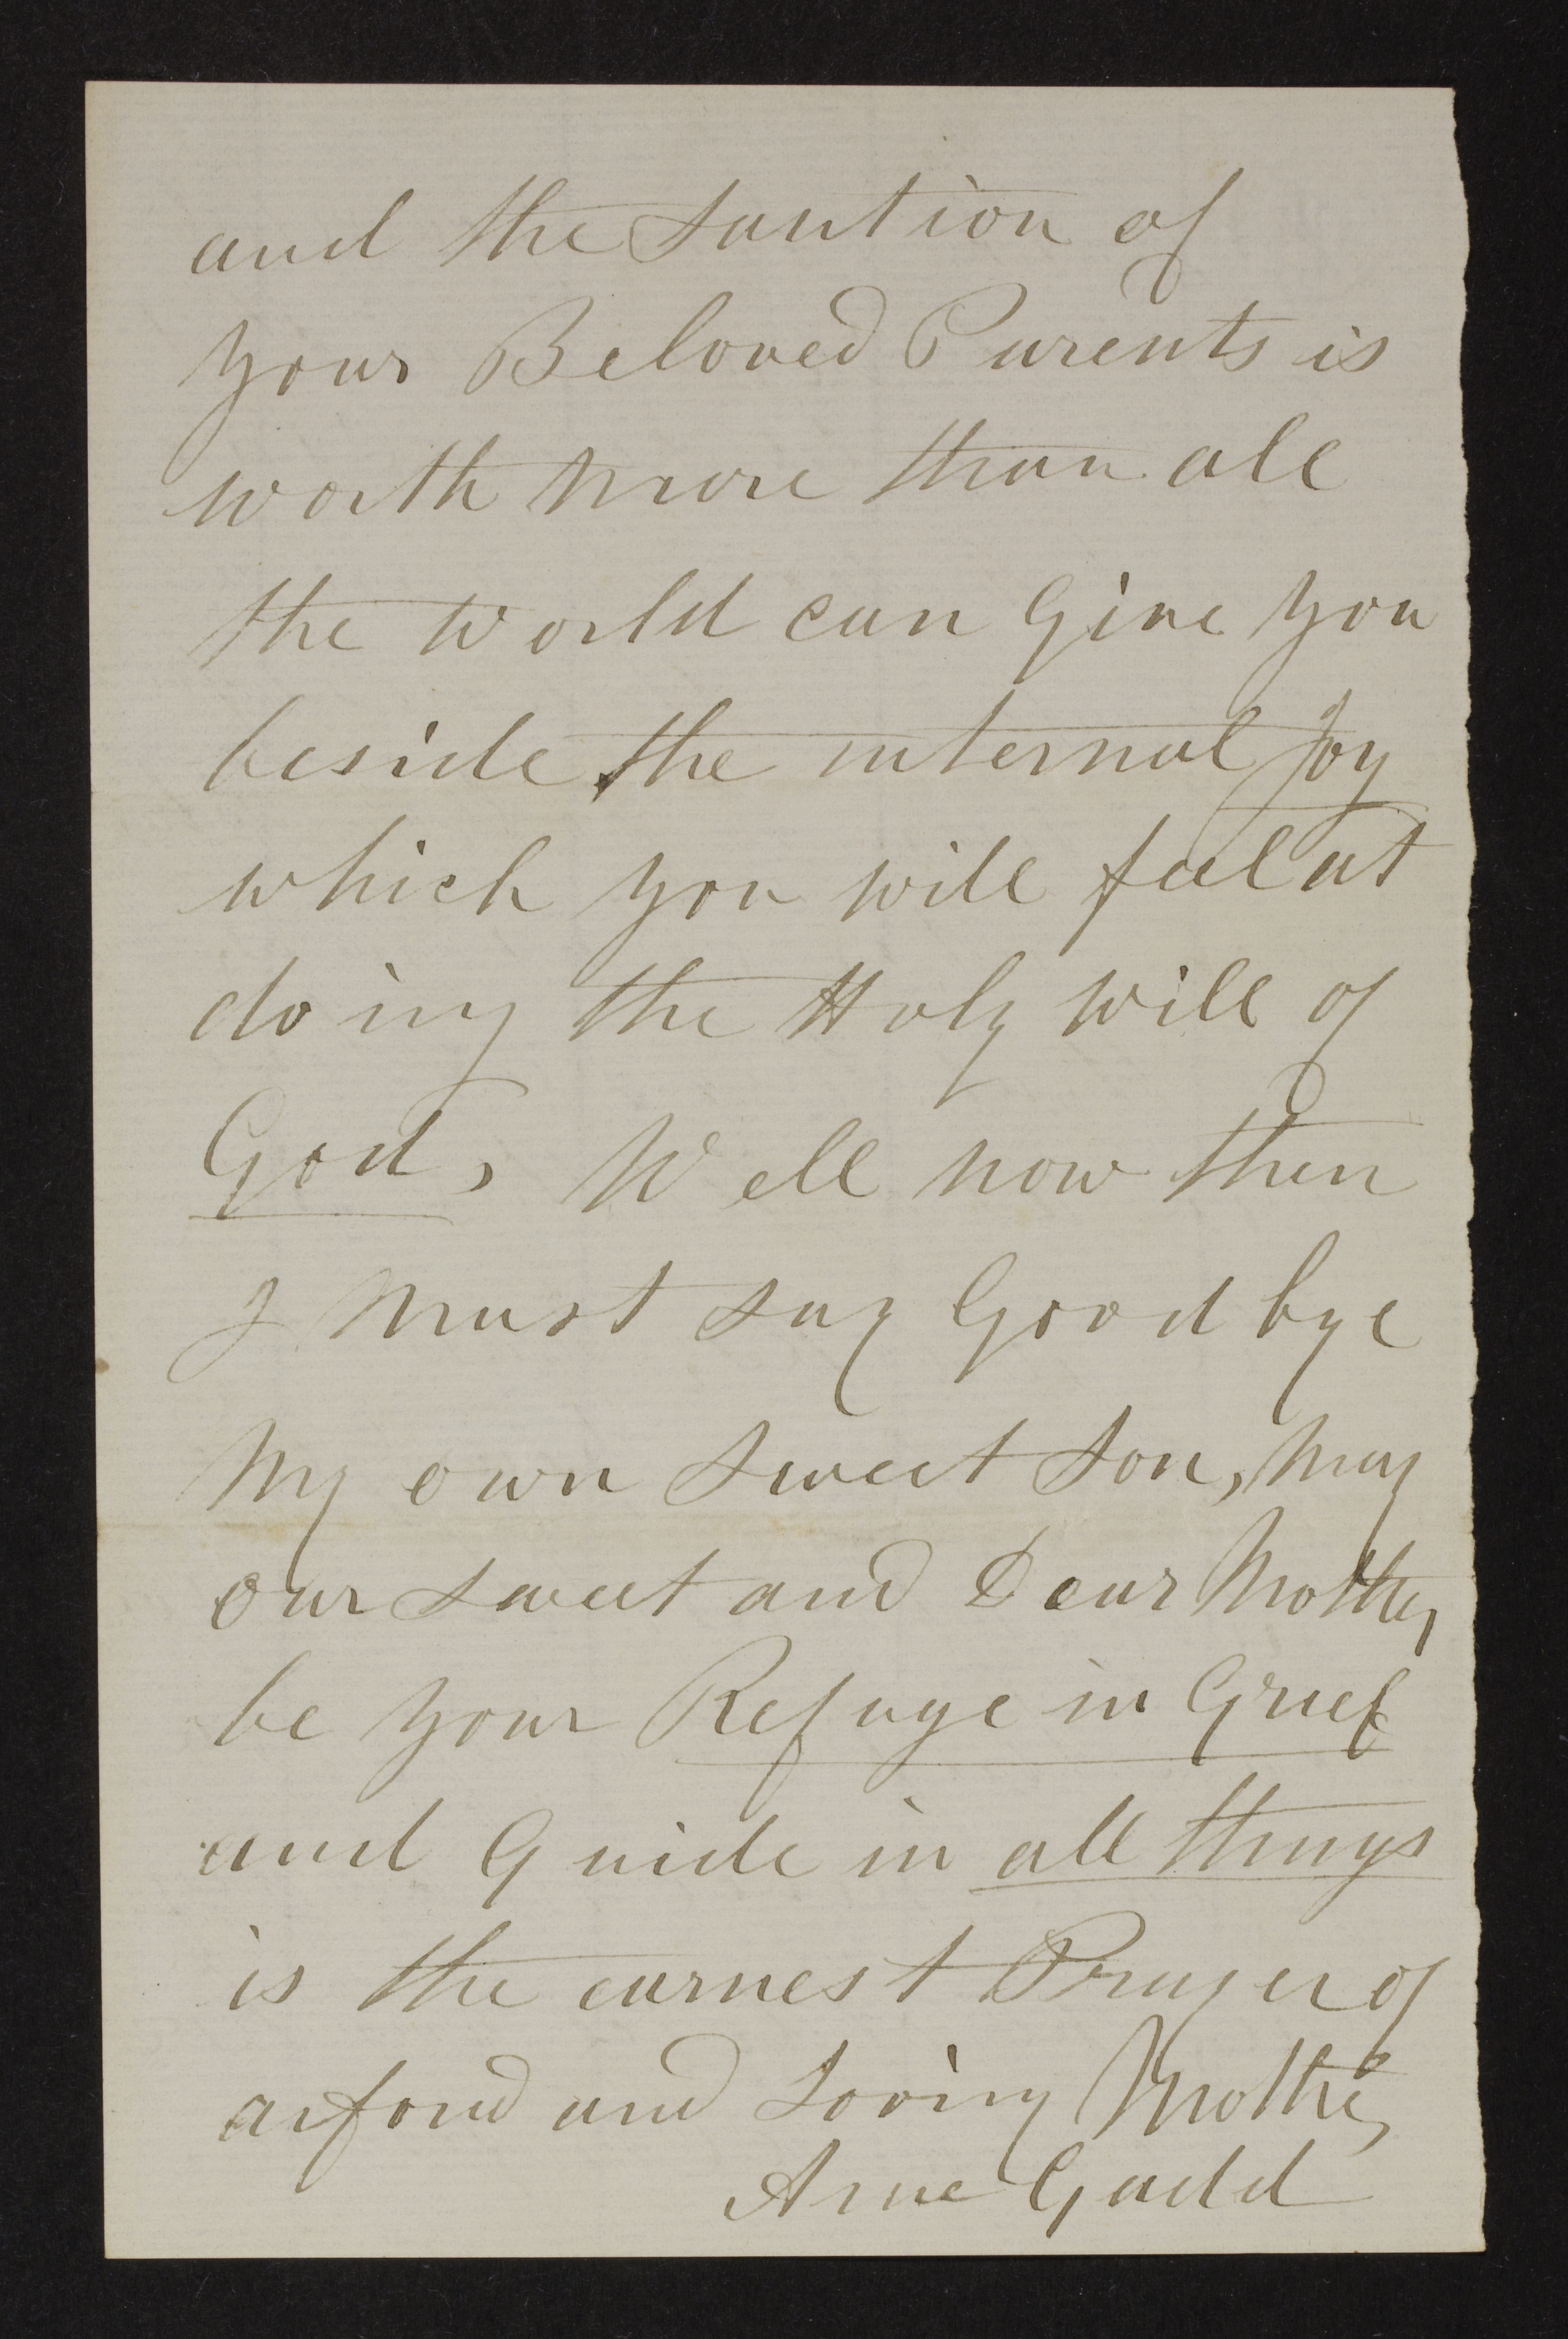 and the santion of
your Beloved Parents is
worth more than all
the World can Give you
beside the internal Joy
which you will feel at
doing the Holy Will of
God, Well now then
I Must say Good bye
My own Sweet Son, May
our sweet and Dear Mother
be your Refuge in Grief
and Guide in all things
is the earnest Prayer of
a fond and Loving Mother,
Anne Gadd